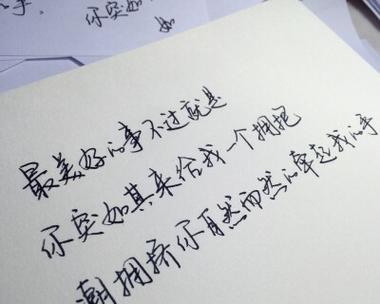 手.
你突如
如
最美好的事不过就是
你突如其来给我一个拥抱
潮拥挤你自然而然的牵起我的手